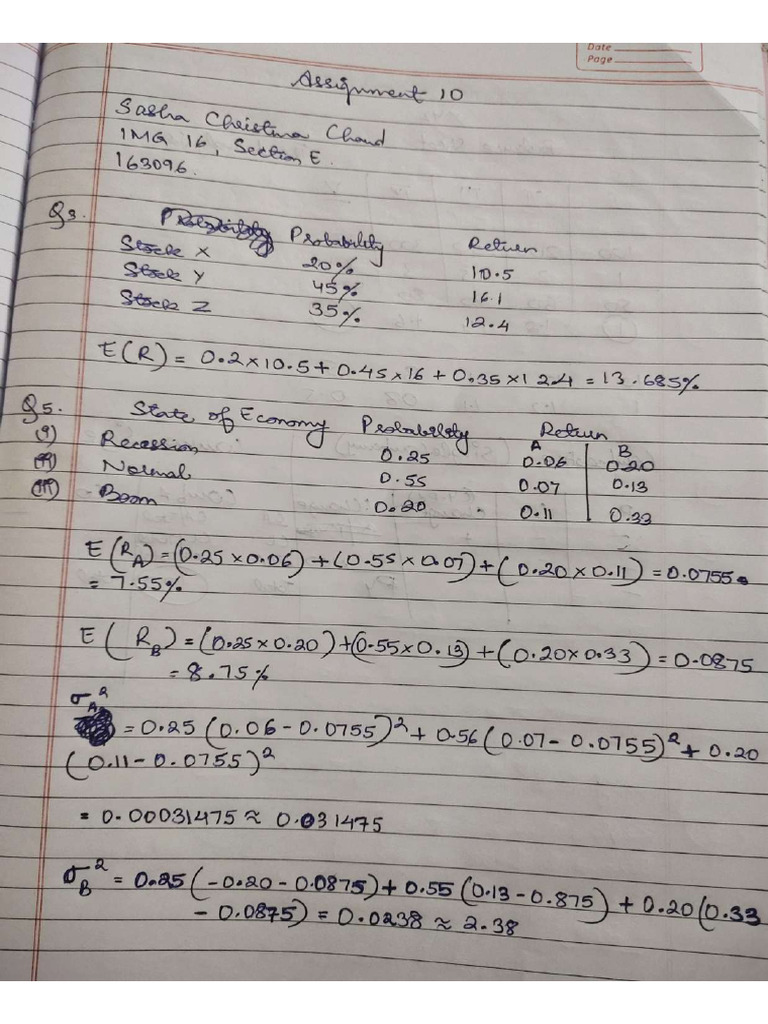 Date
Page
Assignment 10
Sasha Christina Chand
IMG 16, Section E.
163096.
Q3. Probability Return
Stock X 20% 10.5
Stock Y 45% 16.1
Stock Z 35% 12.4
E(R) = 0.2×10.5+0.45×16+0.35×12.4 = 13.685%
Q5. State of Economy Probability Return
A B
(i) Recession 0.25 0.06 0.20
(ii) Normal 0.55 0.07 0.13
(iii) Boom 0.20 0.11 0.33
E(R_A) = (0.25×0.06)+(0.55×0.07)+(0.20×0.11) = 0.0755
= 7.55%
E(R_B) = (0.25×0.20)+(0.55×0.13)+(0.20×0.33) = 0.0875
= 8.75%
σ_A² = 0.25(0.06-0.0755)²+0.56(0.07-0.0755)²+0.20
(0.11-0.0755)²
= 0.00031475 ≈ 0.031475
σ_B² = 0.25(-0.20-0.0875)+0.55(0.13-0.875)+0.20(0.33
-0.0875) = 0.0238 ≈ 2.38